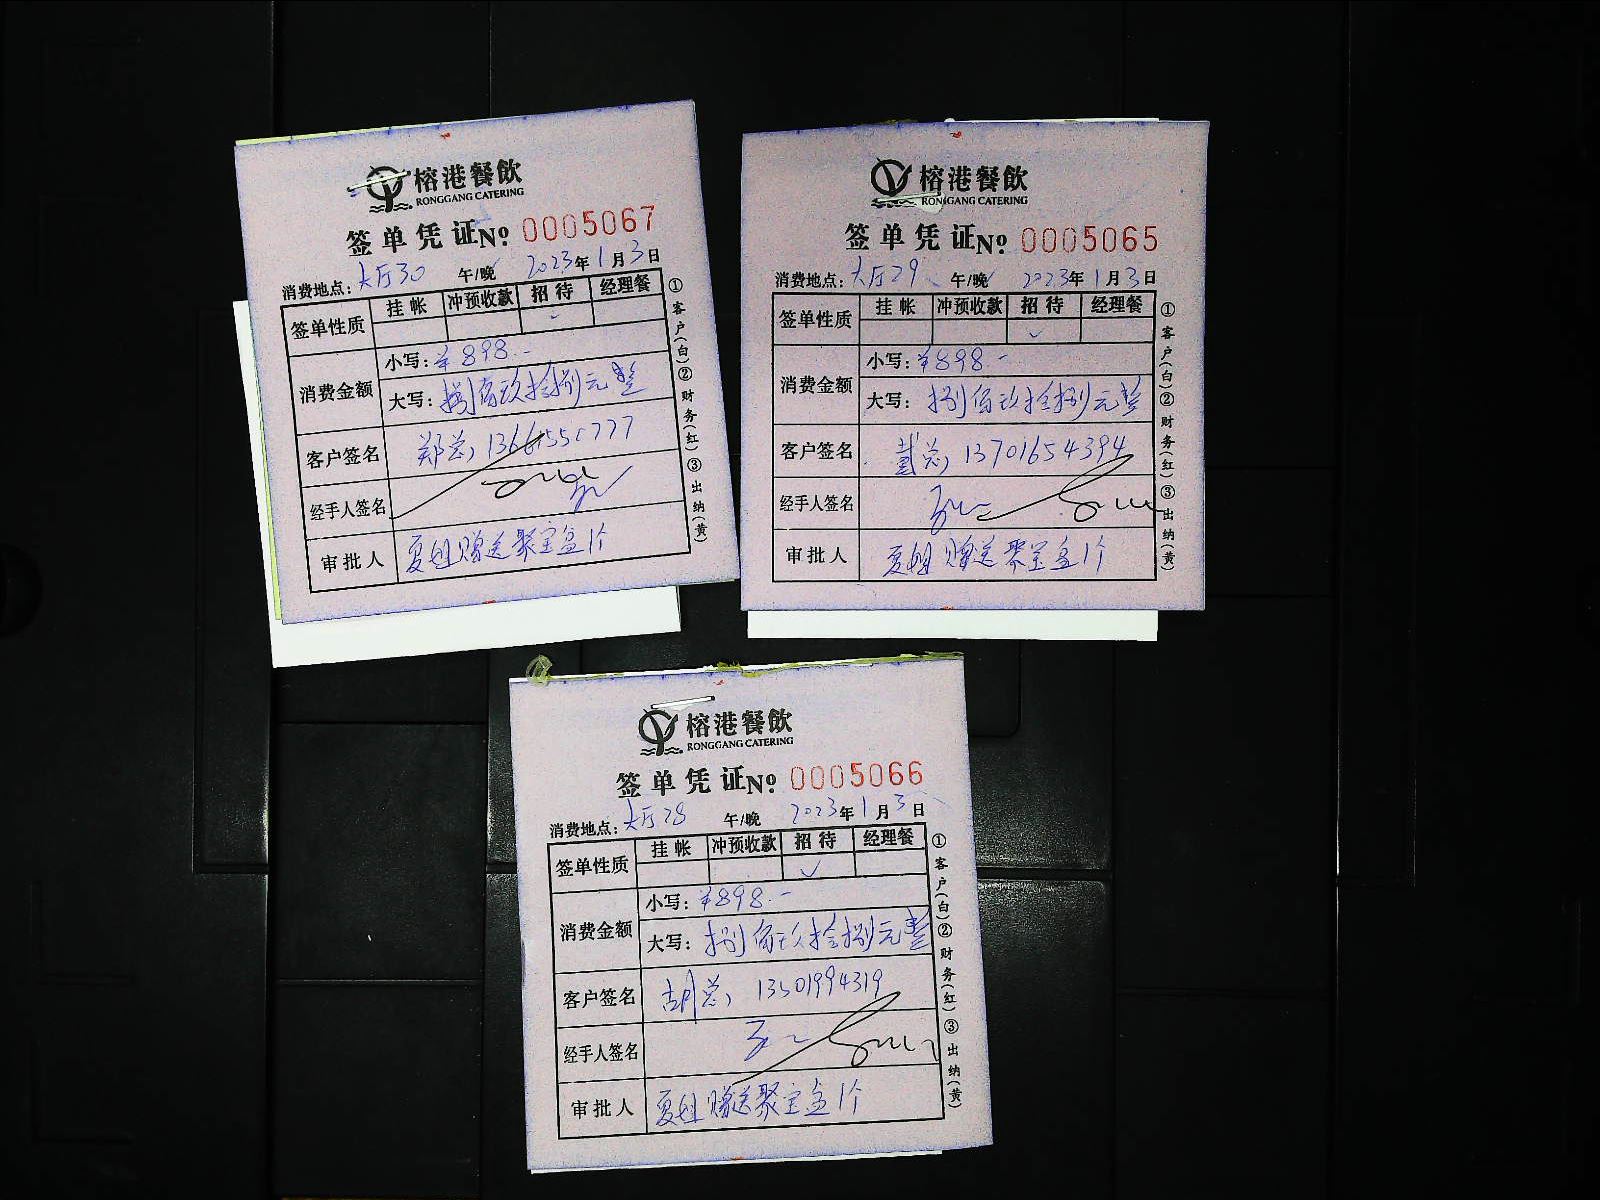 榕港餐飲
RONGGANG CATERING
签单凭证№ 0005067
消费地点：大厅30 午/晚 2023年1月3日
签单性质 挂帐 冲预收款 招待 经理餐
✓
消费金额
小写：¥898.-
大写：捌佰玖拾捌元整
客户签名 郑总，13661550777
经手人签名
审批人 夏姐赠送聚宝盆1个
①客户(白)②财务(红)③出纳(黄)
榕港餐飲
RONGGANG CATERING
签单凭证№ 0005065
消费地点：大厅29 午/晚 2023年1月3日
签单性质 挂帐 冲预收款 招待 经理餐
✓
消费金额
小写：¥898.-
大写：捌佰玖拾捌元整
客户签名 戴总，13701654394
经手人签名
审批人 夏姐赠送聚宝盆1个
①客户(白)②财务(红)③出纳(黄)
榕港餐飲
RONGGANG CATERING
签单凭证№ 0005066
消费地点：大厅28 午/晚 2023年1月3日
签单性质 挂帐 冲预收款 招待 经理餐
✓
消费金额
小写：¥898.-
大写：捌佰玖拾捌元整
客户签名 胡总，13501994319
经手人签名
审批人 夏姐赠送聚宝盆1个
①客户(白)②财务(红)③出纳(黄)